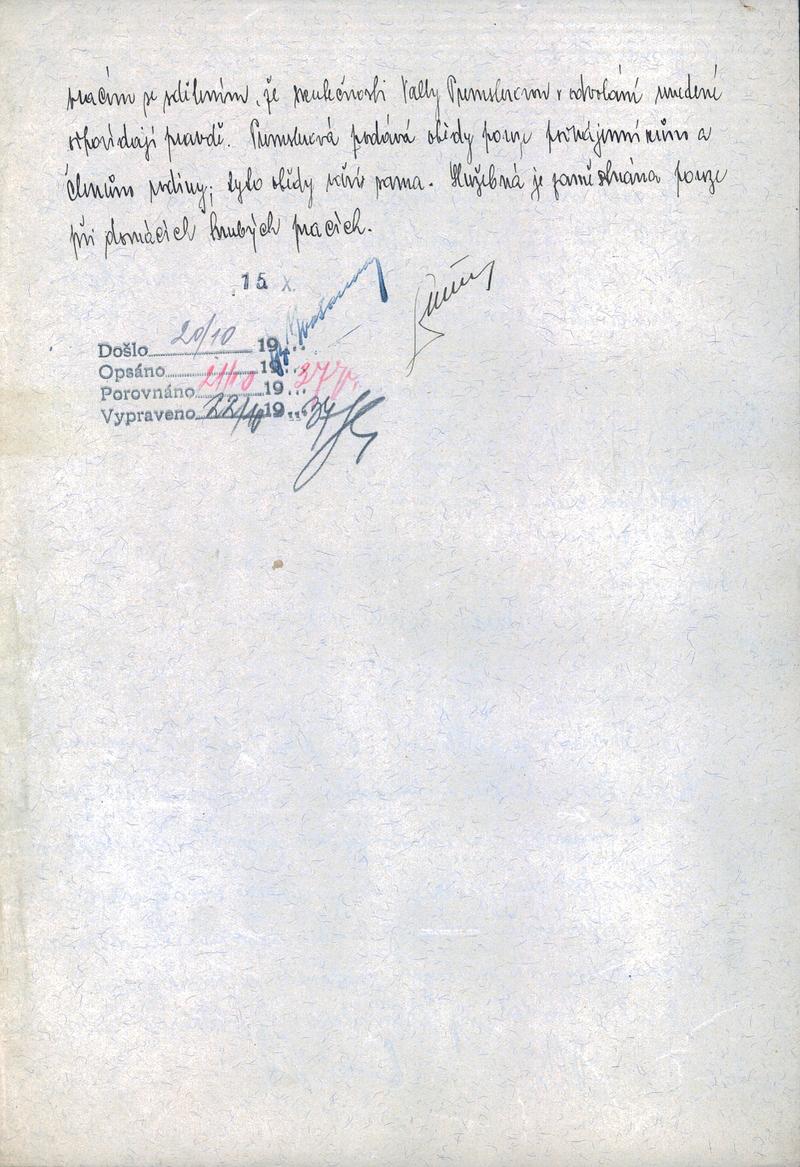 vracím se sdělením, že skutečnosti Vally v odvolání uvedené
odpovídají pravdě. podává obědy pouze podnájemníkům a
členům rodiny; tyto obědy vaří sama. Služebná je zaměstnána pouze
při domácích hrubých pracích.
15 X.
Došlo 20/10 19...
Opsáno 21/10 19... 37
Porovnáno 19...
Vypraveno 22/10 19...37